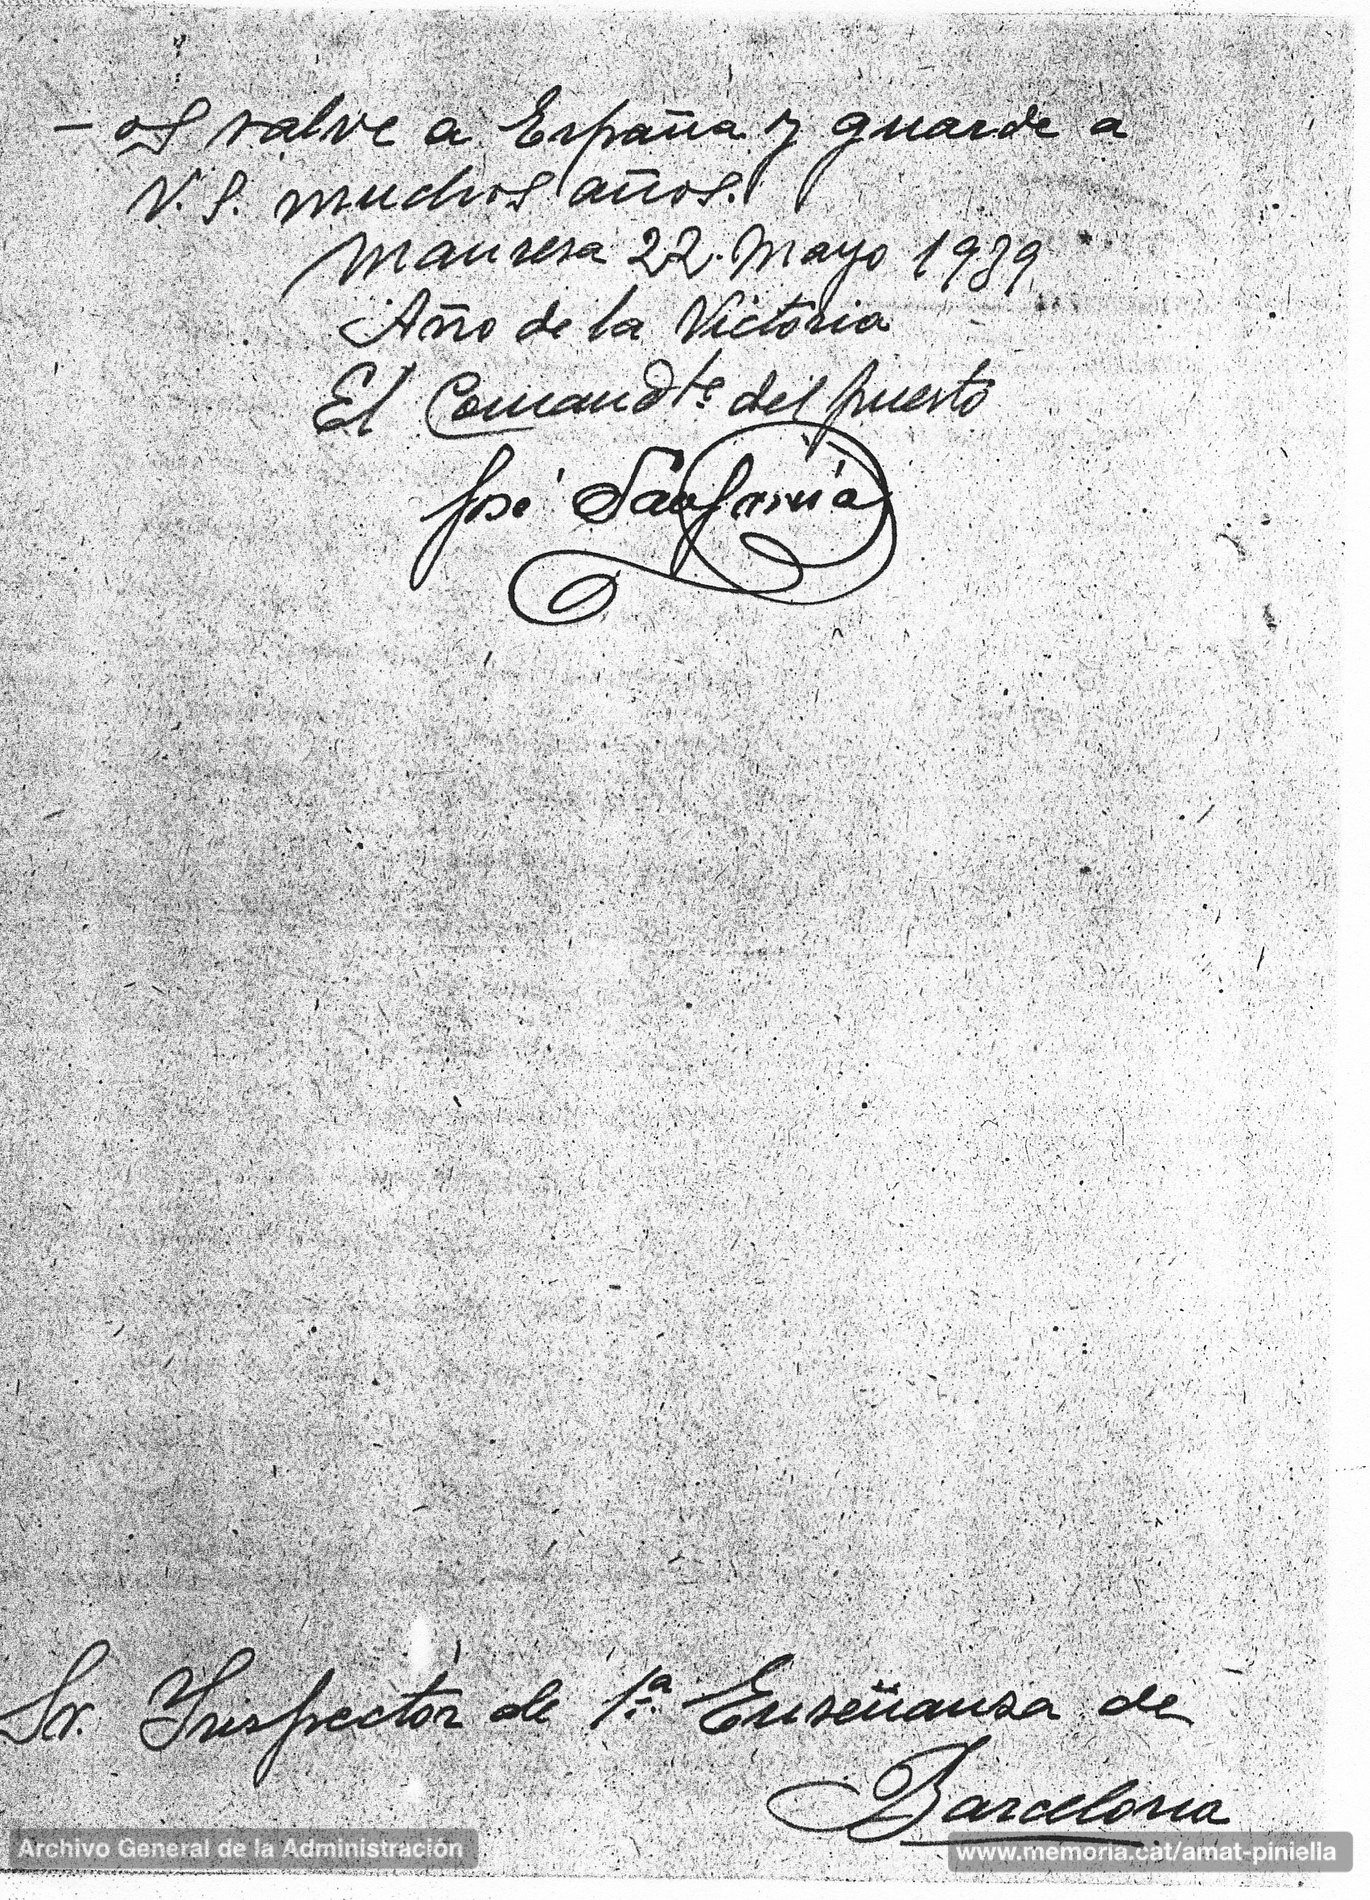 – os salve a España y guarde a
V. S. muchos años.
Manresa 22. Mayo 1939
Año de la Victoria
El Comandte. del puesto
José
Sr. Inspector de 1ª. Enseñanza de
Barcelona
Archivo General de la Administración
www.memoria.cat/amat-piniella